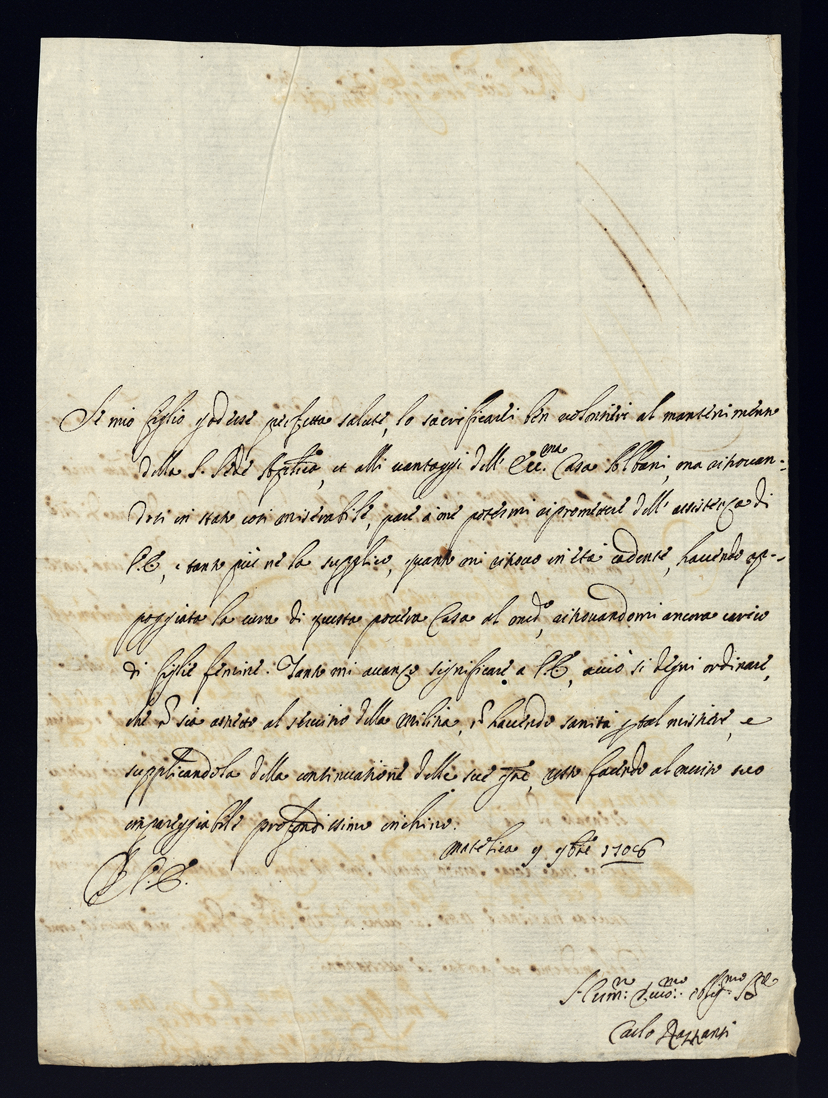 Se mio figlio godesse perfetta salute, lo sacrificarei ben volontieri al mantenimento
della S. Sede Apstlica, et alli vantaggi dell' Ecc.ma Casa Albani, ma ritrovan-
dosi in stato così miserabile, pare à me potermi ripromettere dell' assistenza di
V.E., e tanto più ne la supplico, quanto mi ritrovo in età cadente, havendo ap-
poggiata la cura di questa povera Casa al med.o, ritrovandomi ancora carico
di figlie femine. Tanto mi avanzo significare a V.E., acciò si degni ordinare,
che ñ sia astretto al servitio della militia, ñ havendo sanità p tal mistiere, e
supplicandola della continuatione delle sue gre, resto facendo al merito suo
impareggiabile profondissimo inchino.
Matelica 9 9bre 1706
D V.E.
Hum.o Devo.mo oblig.mo Se.re
Carlo